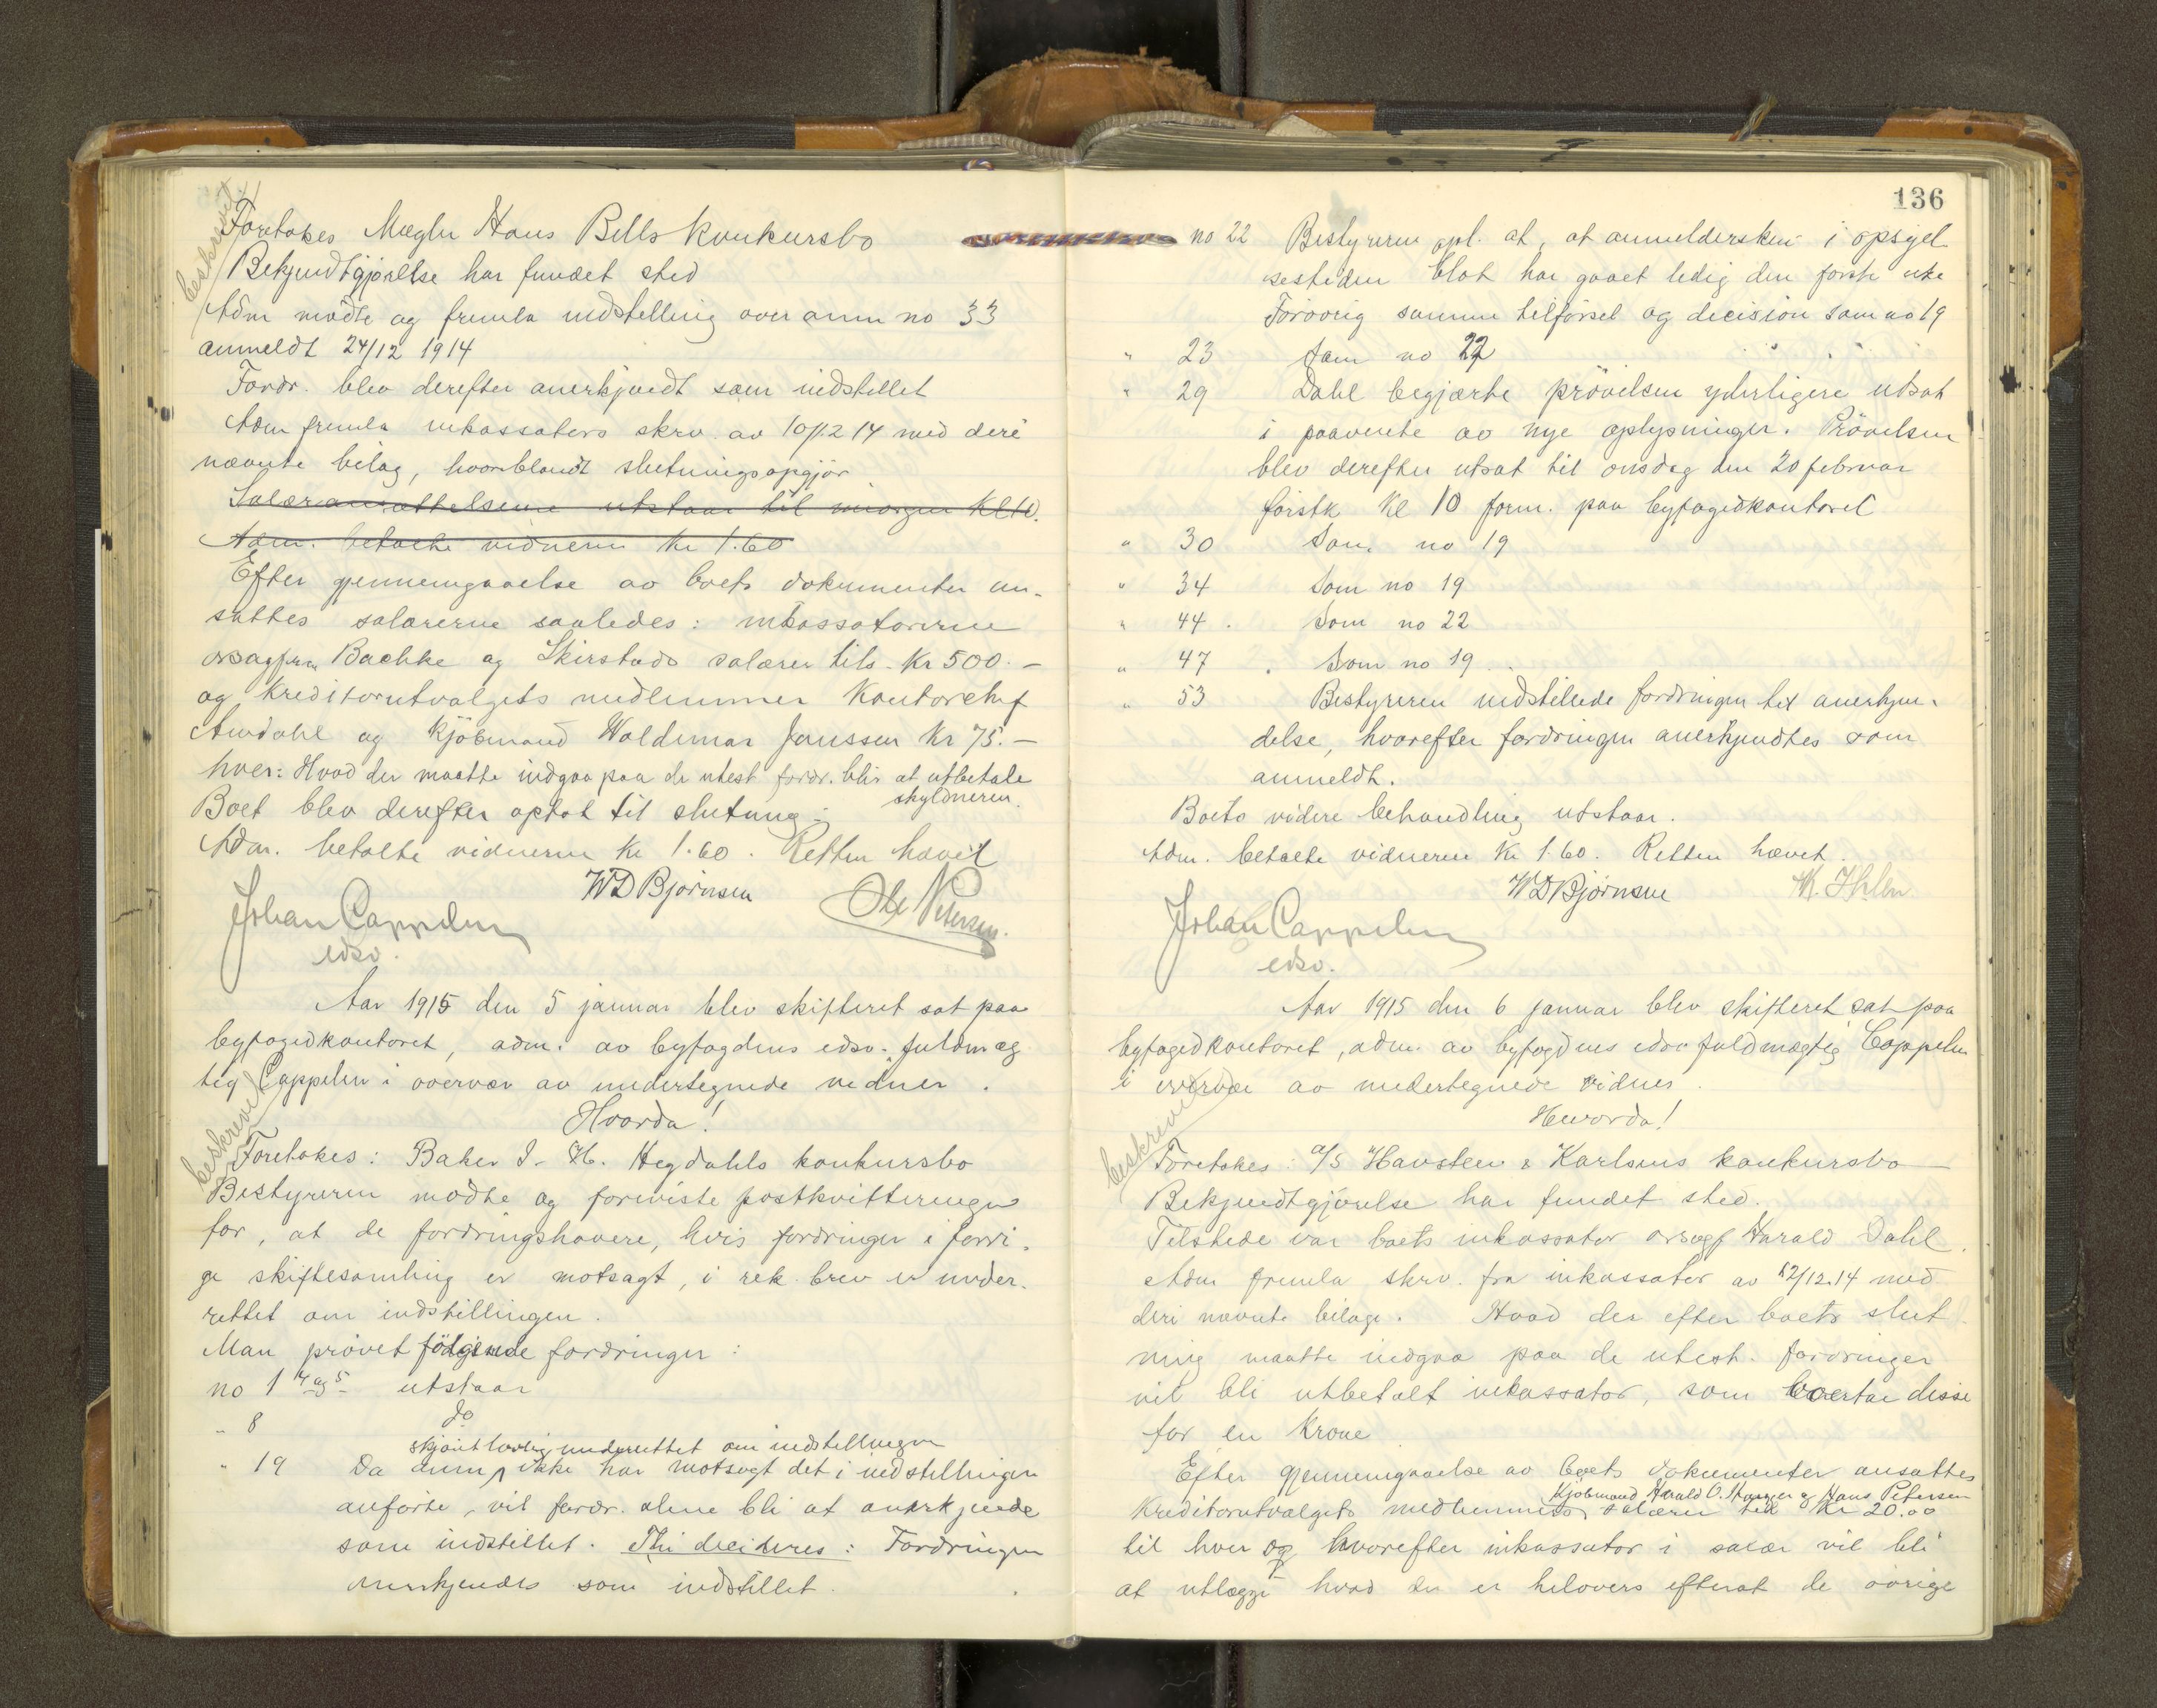 beskrevet
Foretokes Mægler Hans Bells konkursbo
Bekjendtgjørelse har fundet sted
Adm mødte og fremla indstilling over anm no 33
anmeldt 24/12 1914
Fordr. blev derefter anerkjendt som indstillet
Adm fremla inkassators skrv. av 10/12 14 med deri
nævnte bilag, hvoriblandt slutningsopgjør
Salæransættelserne utstaar til imorgen kl 10.
Adm. betalte vidnerne Kr 1.60
Efter gjennemgaaelse av boets dokumenter an-
sattes salærerne saaledes: inkassatorerne
orsagfrer Bachke og Skirstads salærer tils. Kr 500.-
og kreditorutvalgets medlemmer Kontorchef
Amdahl og Kjöbmand Waldemar Janssen Kr 75.-
hver: Hvad der maatte indgaa paa de utest fordr. blir at utbetale
skyldneren.
Boet blev derefter optat til slutning.
Adm. betalte vidnerne Kr 1.60. Retten hævet
WD Bjørnsen Ole Petersen.
Johan Cappelen
edsv.
Aar 1915 den 5 januar blev skifteret sat paa
byfogedkontoret, adm. av byfogdens edsv. fuldmæg
tig Cappelen i overvær av undertegnede vidner.
Hvorda!
beskrevet
Foretokes: Baker I. H. Hegdahls konkursbo
Bestyreren mødte og foreviste postkvitteringer
for, at de fordringshavere, hvis fordringer i forri-
ge skiftesamling er motsagt, i rek. brev er under-
rettet om indstillingen.
Man prøvet følgende fordringer:
no 1 4 og 5 utstaar
" 8 do
skjönt lovlig underrettet om indstillingen
" 19 Da anm. ikke har motsagt det i indstillingen
anförte, vil fordr. alene bli at anerkjende
som indstillet. Thi decideres: Fordringen
anerkjendes som indstillet.
136
no 22 Bestyreren opl. at, at anmeldersken i opsigel
sestiden blot har gaaet ledig den förste uke
Forövrig samme tilförsel og decision som no 19
" 23 Som no 22
" 29 Dahl begjærte prövelsen yderligere utsat
i paavente av nye oplysninger. Prövelsen
blev derefter utsat til onsdag den 20 februar
förstk Kl 10 form. paa byfogedkontoret
" 30 Som no 19
" 34 Som no 19
" 44. Som no 22
" 47. Som no 19
" 53 Bestyreren indstillede fordringen til anerkjen-
delse, hvorefter fordringen anerkjendtes som
anmeldt.
Boets videre behandling utstaar.
Adm. betalte vidnerne Kr 1.60. Retten hævet.
WDBjørnsen K. Ihlen
Johan Cappelen
edsv.
Aar 1915 den 6 januar blev skifteret sat paa
byfogedkontoret, adm. av byfogdens edsv fuldmægtig Cappelen
i overvær av undertegnede vidner.
Hvorda!
beskrevet
Foretokes: a/s Havsteen & Karlsens konkursbo
Bekjendtgjörelse har fundet sted.
Tilstede var boets inkassator orsagf Harald Dahl.
Adm fremla skrv. fra inkassator av 12/12.14 med
deri nævnte bilage. Hvad der efter boets slut
ning maatte indgaa paa de utest. fordringer
vil bli utbetalt inkassator, som overtar disse
for en Krone
Efter gjennemgaaelse av boets dokumenter ansattes
Kjöbmand Harald O. Stavger og Hans Petersen
Kreditorutvalgets medlemmers salærer til Kr 20.00
til hver og hvorefter inkassator i salær vil bli
at utlægge hvad der er tilovers efterat de övrige